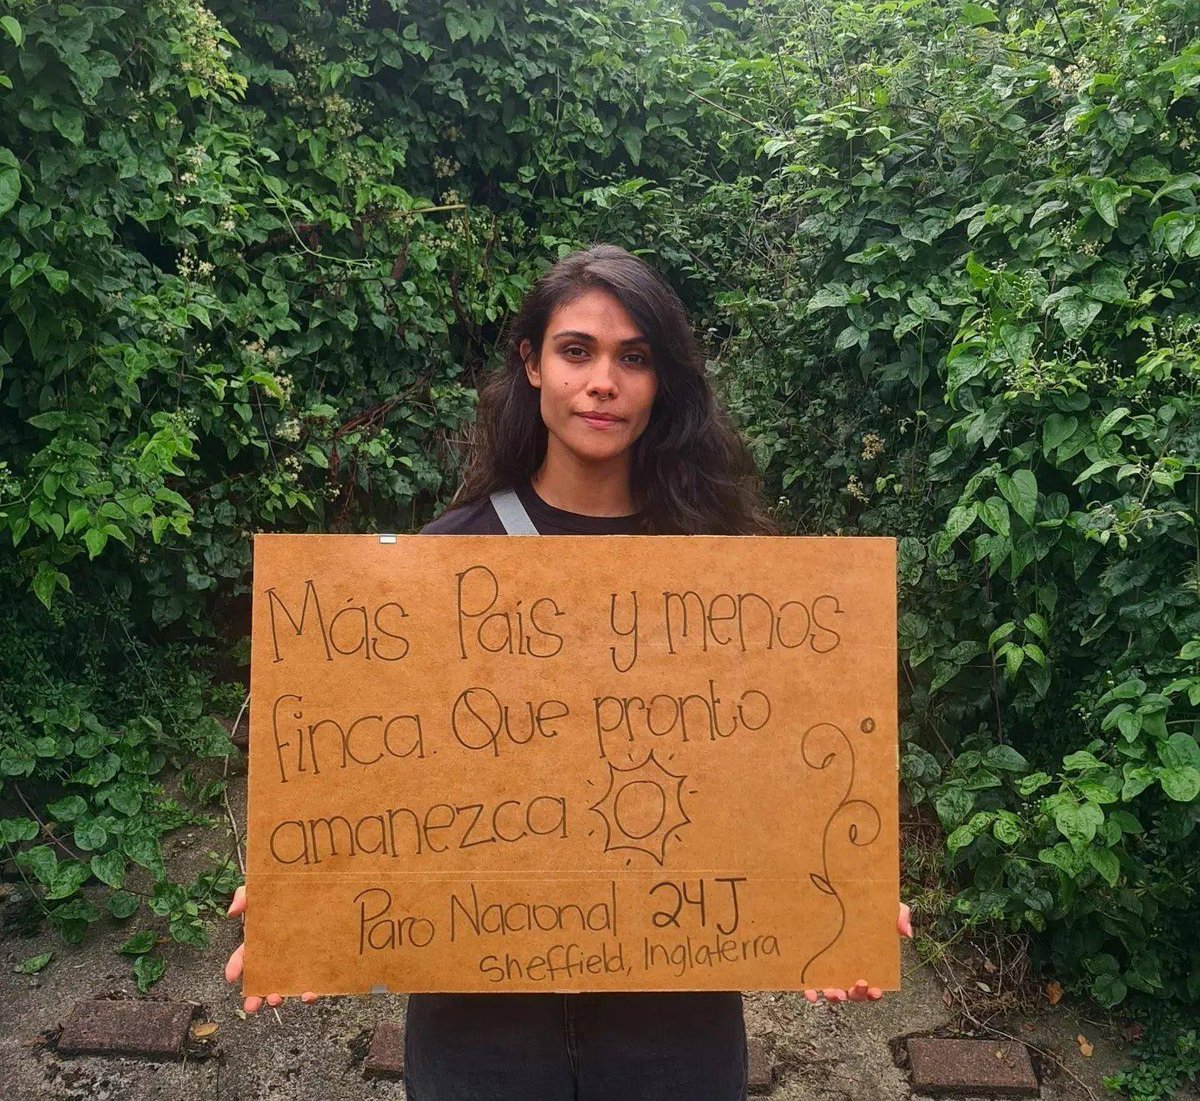 Más País y menos
finca. Que pronto
amanezca
Paro Nacional 24J.
Sheffield, Inglaterra